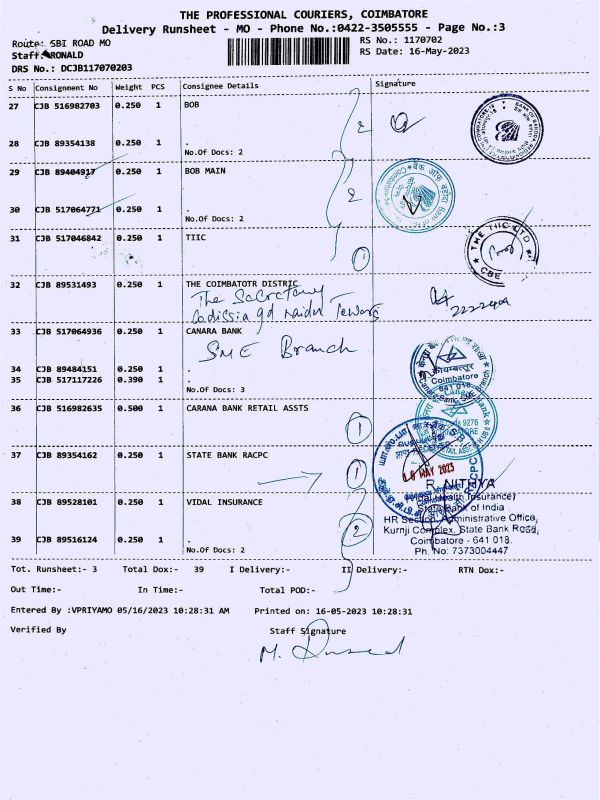 THE PROFESSIONAL COURIERS, COIMBATORE
Delivery Runsheet - MO - Phone No.:0422-3505555 - Page No.:3
Route: SBI ROAD MO
RS No.: 1170702
Staff: RONALD
RS Date: 16-May-2023
DRS No.: DCJB117070203
S No Consignment No Weight PCS Consignee Details Signature
27 CJB 516982703 0.250 1 BOB
2
28 CJB 89354138 0.250 1 .
No.Of Docs: 2
29 CJB 89404917 0.250 1 BOB MAIN
2
30 CJB 517064771 0.250 1 .
No.Of Docs: 2
31 CJB 517046842 0.250 1 TIIC
THE TIIC LTD
CBE
1
32 CJB 89531493 0.250 1 THE COIMBATOTR DISTRIC
The Secretary
Codissia gd naidu Towers
33 CJB 517064936 0.250 1 CANARA BANK
SME Branch
34 CJB 89484151 0.250 1 .
35 CJB 517117226 0.390 1 .
No.Of Docs: 3
कोयम्बत्तूर
Coimbatore
641 018
36 CJB 516982635 0.500 1 CARANA BANK RETAIL ASSTS
1
37 CJB 89354162 0.250 1 STATE BANK RACPC
1
16 MAY 2023
R. NITHYA
38 CJB 89528101 0.250 1 VIDAL INSURANCE
2
(Vidal Health Insurance)
State Bank of India
HR Section, Administrative Office,
Kurnji Complex, State Bank Road,
39 CJB 89516124 0.250 1 .
Coimbatore - 641 018.
No.Of Docs: 2
Ph. No: 7373004447
Tot. Runsheet:- 3 Total Dox:- 39 I Delivery:- II Delivery:- RTN Dox:-
Out Time:- In Time:- Total POD:-
Entered By :VPRIYAMO 05/16/2023 10:28:31 AM Printed on: 16-05-2023 10:28:31
Verified By Staff Signature